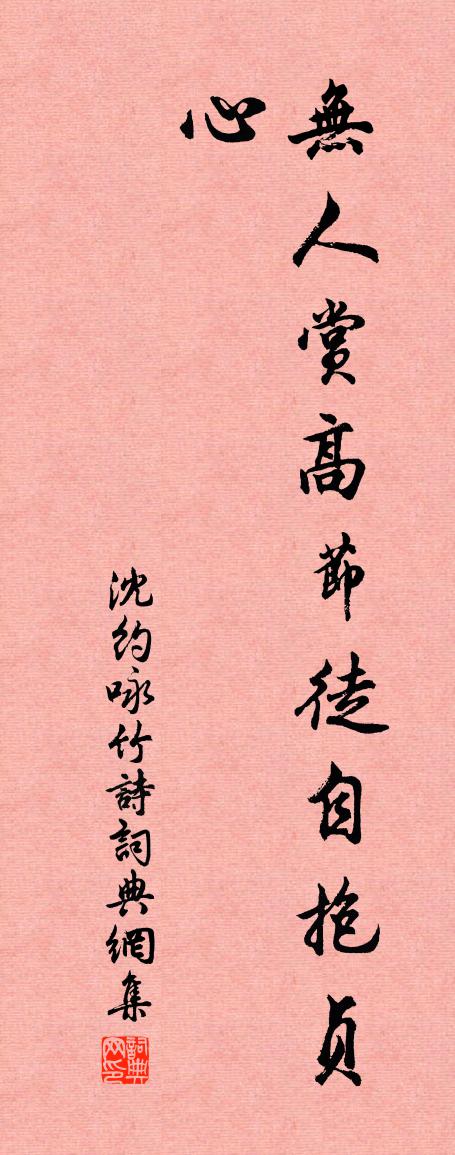 無人賞高節徒自抱貞
心
沈約咏竹詩詞典網集
詞典网印